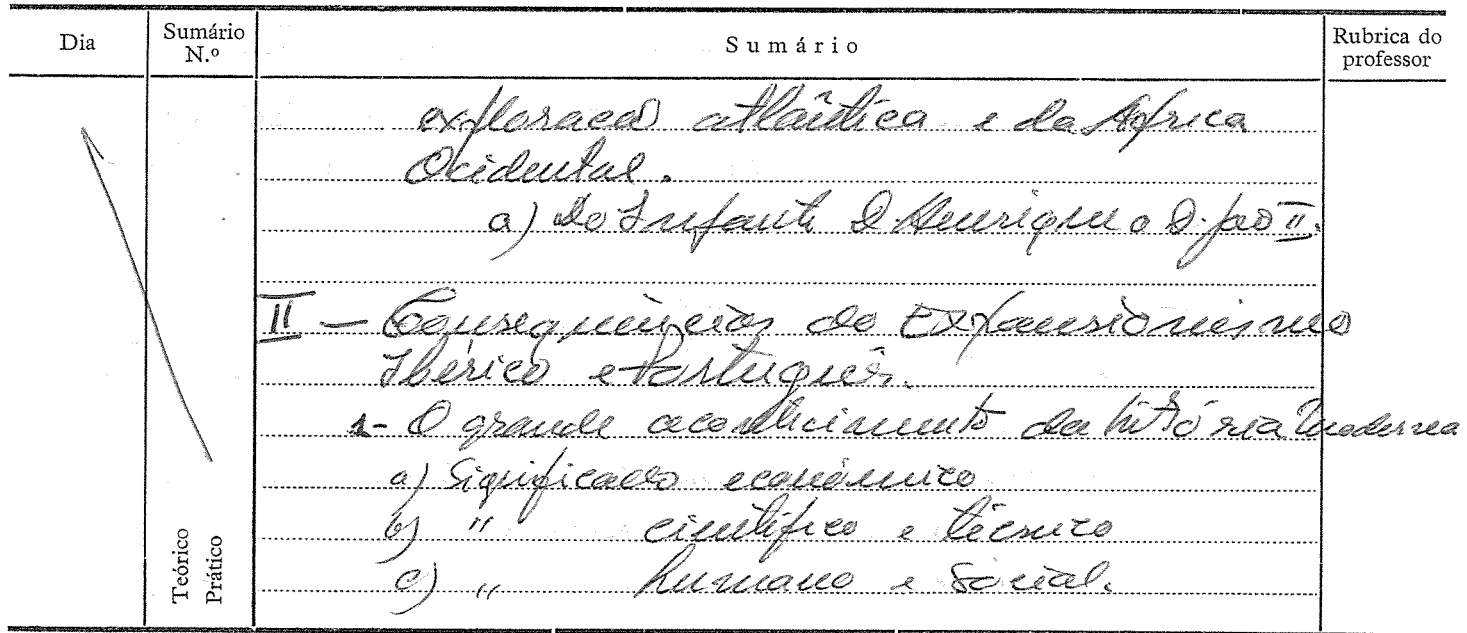 Dia
Sumário
N.º
Sumário
Rubrica do
professor
exploração atlântica e da África
Ocidental.
a) Do Infante D. Henrique a D. João II.
II - Consequências do Expansionismo
Ibérico e Português.
1- O grande acontecimento da história moderna
a) Significado económico
b) " científico e técnico
c) " humano e social.
Teórico
Prático